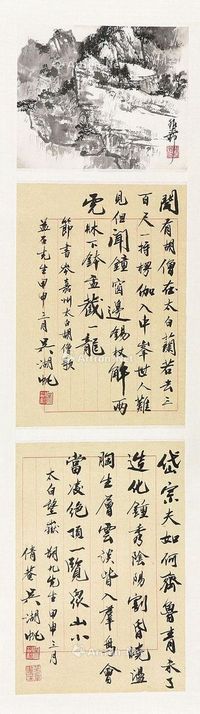 聞有胡僧在太白蘭若去三
百尺一持楞伽入中峯世人難
見但聞鐘窗邊錫杖解兩
虎牀下鉢盂藏一龍
節書岑嘉州太白胡僧歌
益石先生甲申三月吳湖帆
岱宗夫如何齊魯青未了
造化鍾秀陰陽割昏曉盪
胸生層雲決眥入羣鳥會
當凌絕頂一覽衆山小
太白望嶽 九先生甲申三月
倩菴吳湖帆